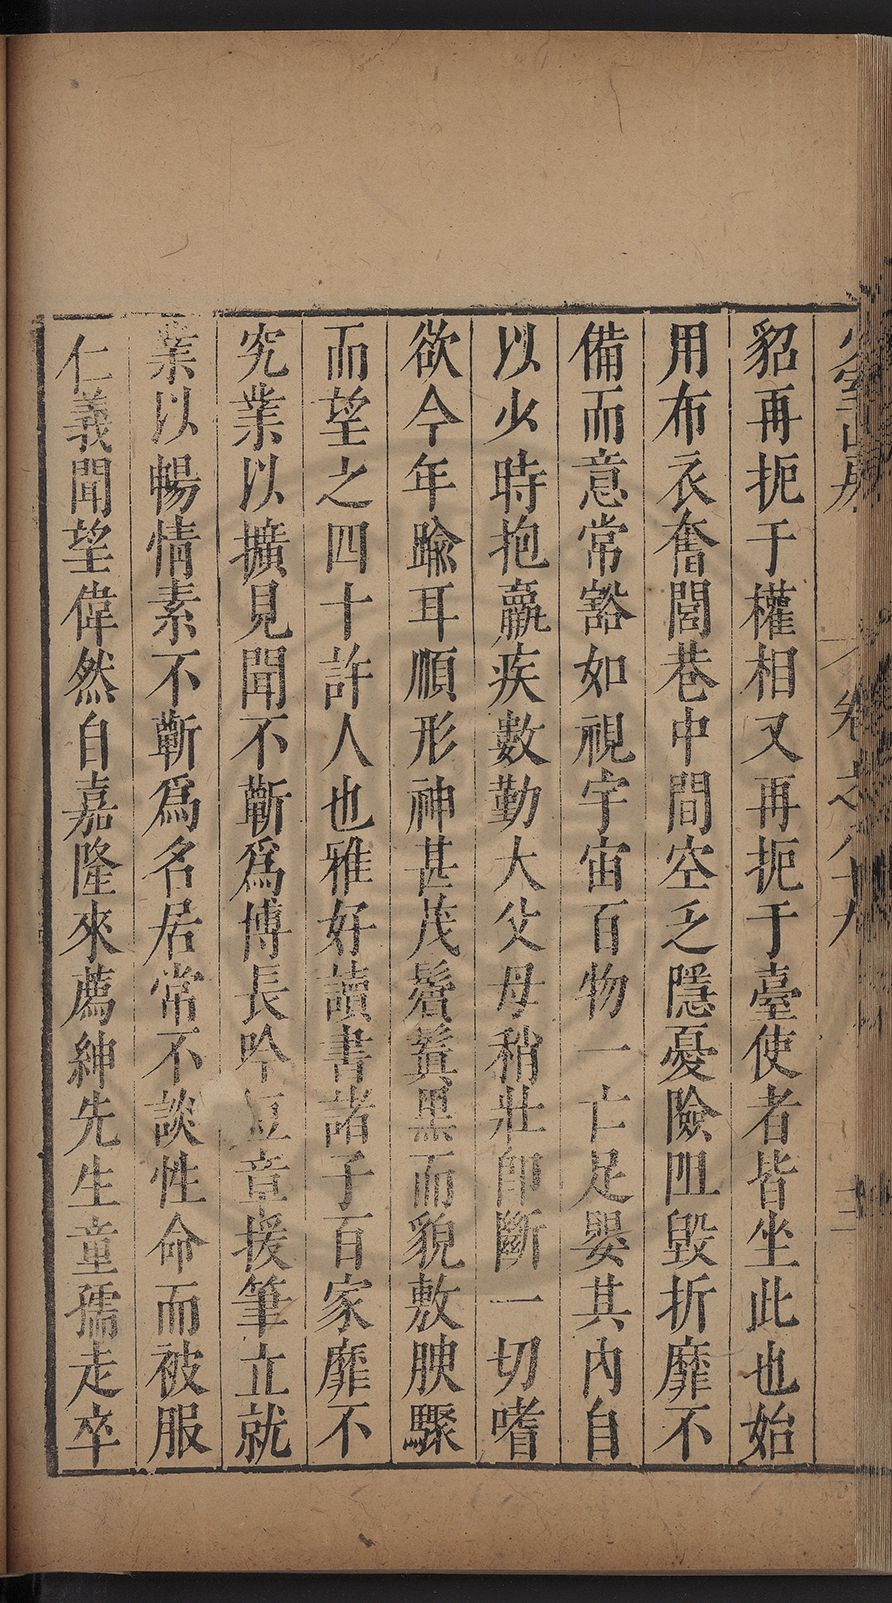 少室山房
卷之八十九
貂再扼于權相又再扼于臺使者皆坐此也始
用布衣奮閭巷中間空乏隱憂險阻毀折靡不
備而意常豁如視宇宙百物一亡足嬰其內自
以少時抱羸疾數勤大父母稍壯卽斷一切嗜
欲今年踰耳順形神甚茂鬚鬒黑而貌敷腴驟
而望之四十許人也雅好讀書諸子百家靡不
究業以擴見聞不蘄爲博長吟短章援筆立就
業以暢情素不蘄爲名居常不談性命而被服
仁義聞望偉然自嘉隆來薦紳先生童孺走卒